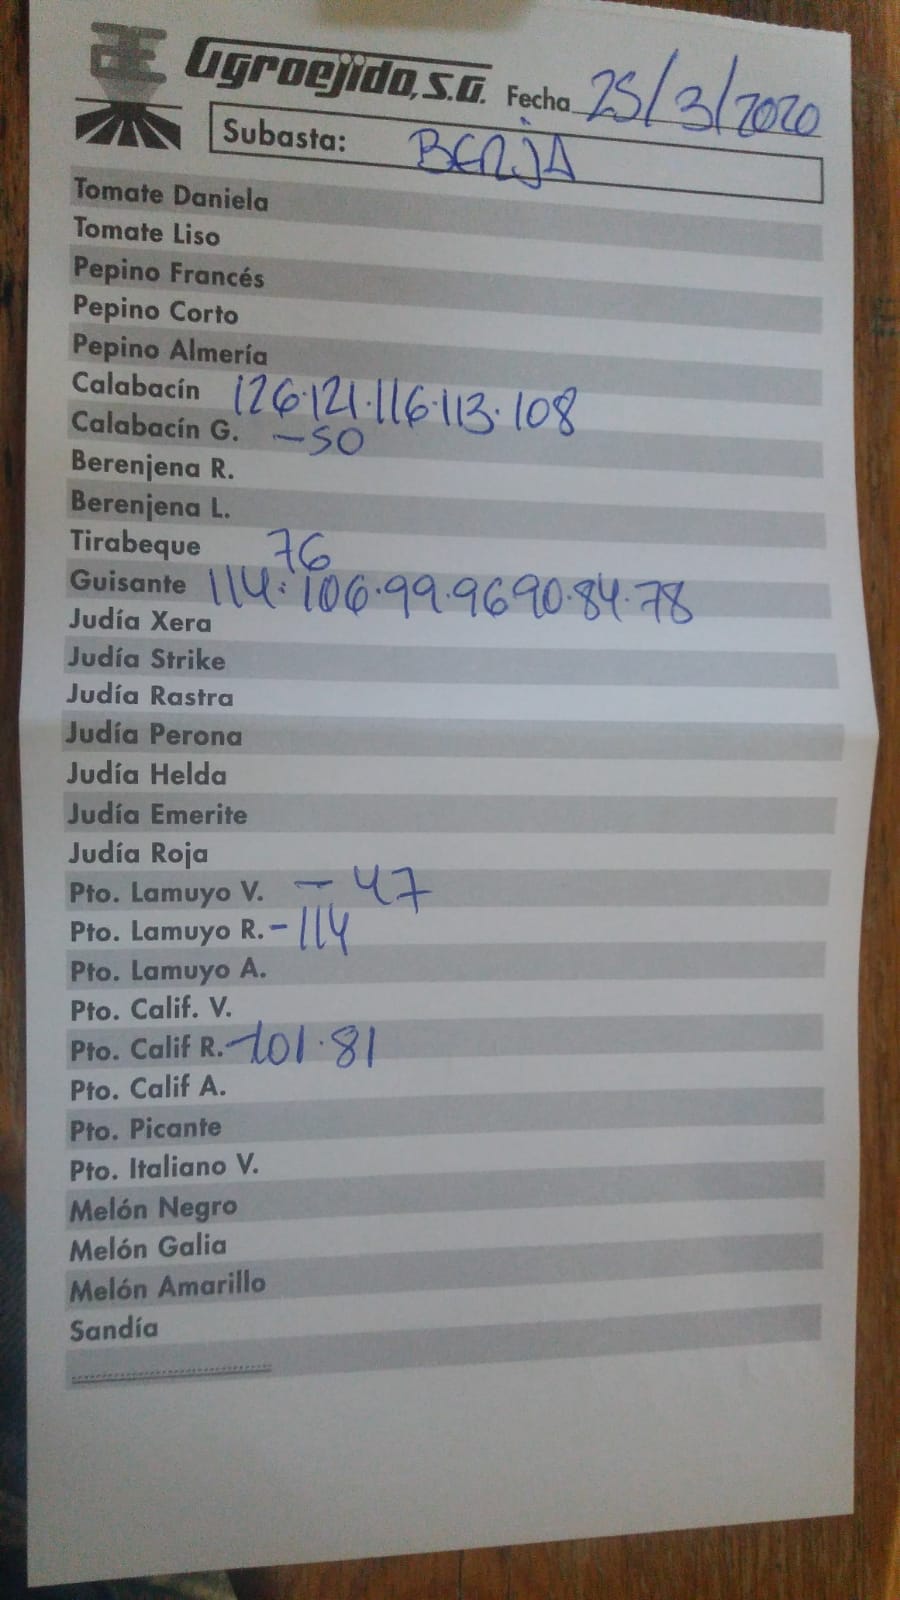 Agroejido, S.A. Fecha 25/3/2020
Subasta: BERJA
Tomate Daniela
Tomate Liso
Pepino Francés
Pepino Corto
Pepino Almería
Calabacín 126.121.116.113.108
Calabacín G. -50
Berenjena R.
Berenjena L.
Tirabeque 76
Guisante 114.106.99.96 90.84.78
Judía Xera
Judía Strike
Judía Rastra
Judía Perona
Judía Helda
Judía Emerite
Judía Roja
Pto. Lamuyo V. - 47
Pto. Lamuyo R. - 114
Pto. Lamuyo A.
Pto. Calif. V.
Pto. Calif R. - 101.81
Pto. Calif A.
Pto. Picante
Pto. Italiano V.
Melón Negro
Melón Galia
Melón Amarillo
Sandía